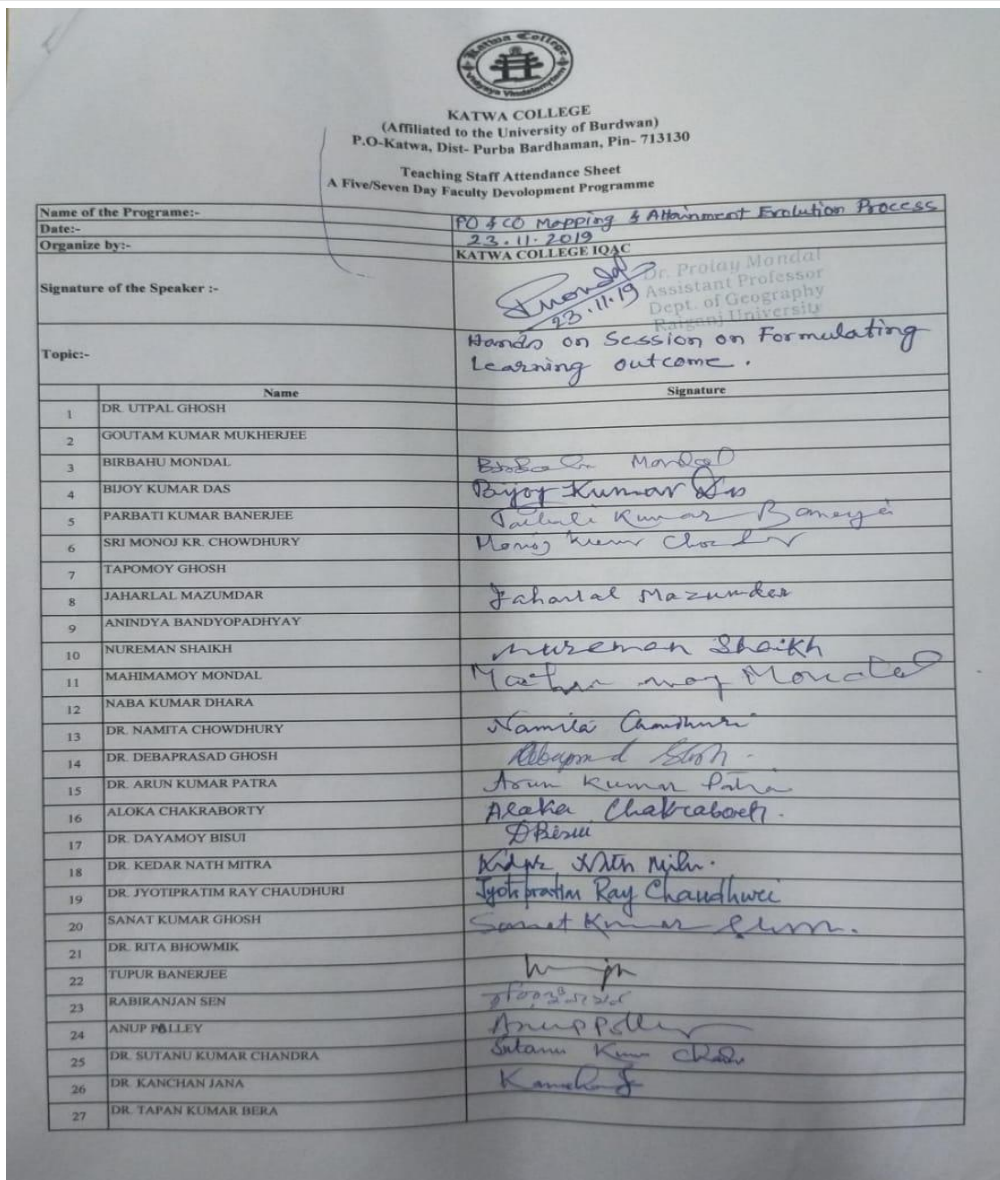 Katwa College
KATWA COLLEGE
(Affiliated to the University of Burdwan)
P.O-Katwa, Dist- Purba Bardhaman, Pin- 713130
Teaching Staff Attendance Sheet
A Five/Seven Day Faculty Devolopment Programme
Name of the Programe:- PO & CO Mapping & Attainment Evolution Process
Date:- 23.11.2019
Organize by:- KATWA COLLEGE IQAC
Signature of the Speaker :- 23.11.19
Dr. Prolay Mandal
Assistant Professor
Dept. of Geography
Raiganj University
Topic:- Hands on Session on Formulating
Learning outcome.
Name Signature
1 DR. UTPAL GHOSH
2 GOUTAM KUMAR MUKHERJEE
3 BIRBAHU MONDAL Mondal
4 BIJOY KUMAR DAS Bijoy Kumar Das
5 PARBATI KUMAR BANERJEE Kumar
6 SRI MONOJ KR. CHOWDHURY Monoj Kumar
7 TAPOMOY GHOSH
8 JAHARLAL MAZUMDAR Jaharlal Mazumdar
9 ANINDYA BANDYOPADHYAY
10 NUREMAN SHAIKH Nureman Shaikh
11 MAHIMAMOY MONDAL Mondal
12 NABA KUMAR DHARA
13 DR. NAMITA CHOWDHURY Namita Chaudhuri
14 DR. DEBAPRASAD GHOSH
15 DR. ARUN KUMAR PATRA Arun Kumar Patra
16 ALOKA CHAKRABORTY Aloka Chakraborty.
17 DR. DAYAMOY BISUI DBisui
18 DR. KEDAR NATH MITRA Nath
19 DR. JYOTIPRATIM RAY CHAUDHURI Jyotipratim Ray Chaudhuri
20 SANAT KUMAR GHOSH Sanat Kumar
21 DR. RITA BHOWMIK
22 TUPUR BANERJEE
23 RABIRANJAN SEN
24 ANUP PALLEY Anup
25 DR. SUTANU KUMAR CHANDRA Sutanu
26 DR. KANCHAN JANA
27 DR. TAPAN KUMAR BERA